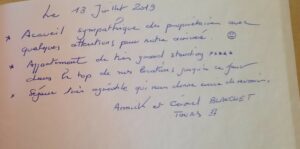 Le 13 Juillet 2019
* Accueil sympathique du propriétaire avec
quelques attentions pour notre arrivée. ☺
* Appartement de très grand standing *****
dans le top de nos locations jusqu'à ce jour
* Séjour très agréable qui nous donne envie de revenir.
Annick et
TOURS